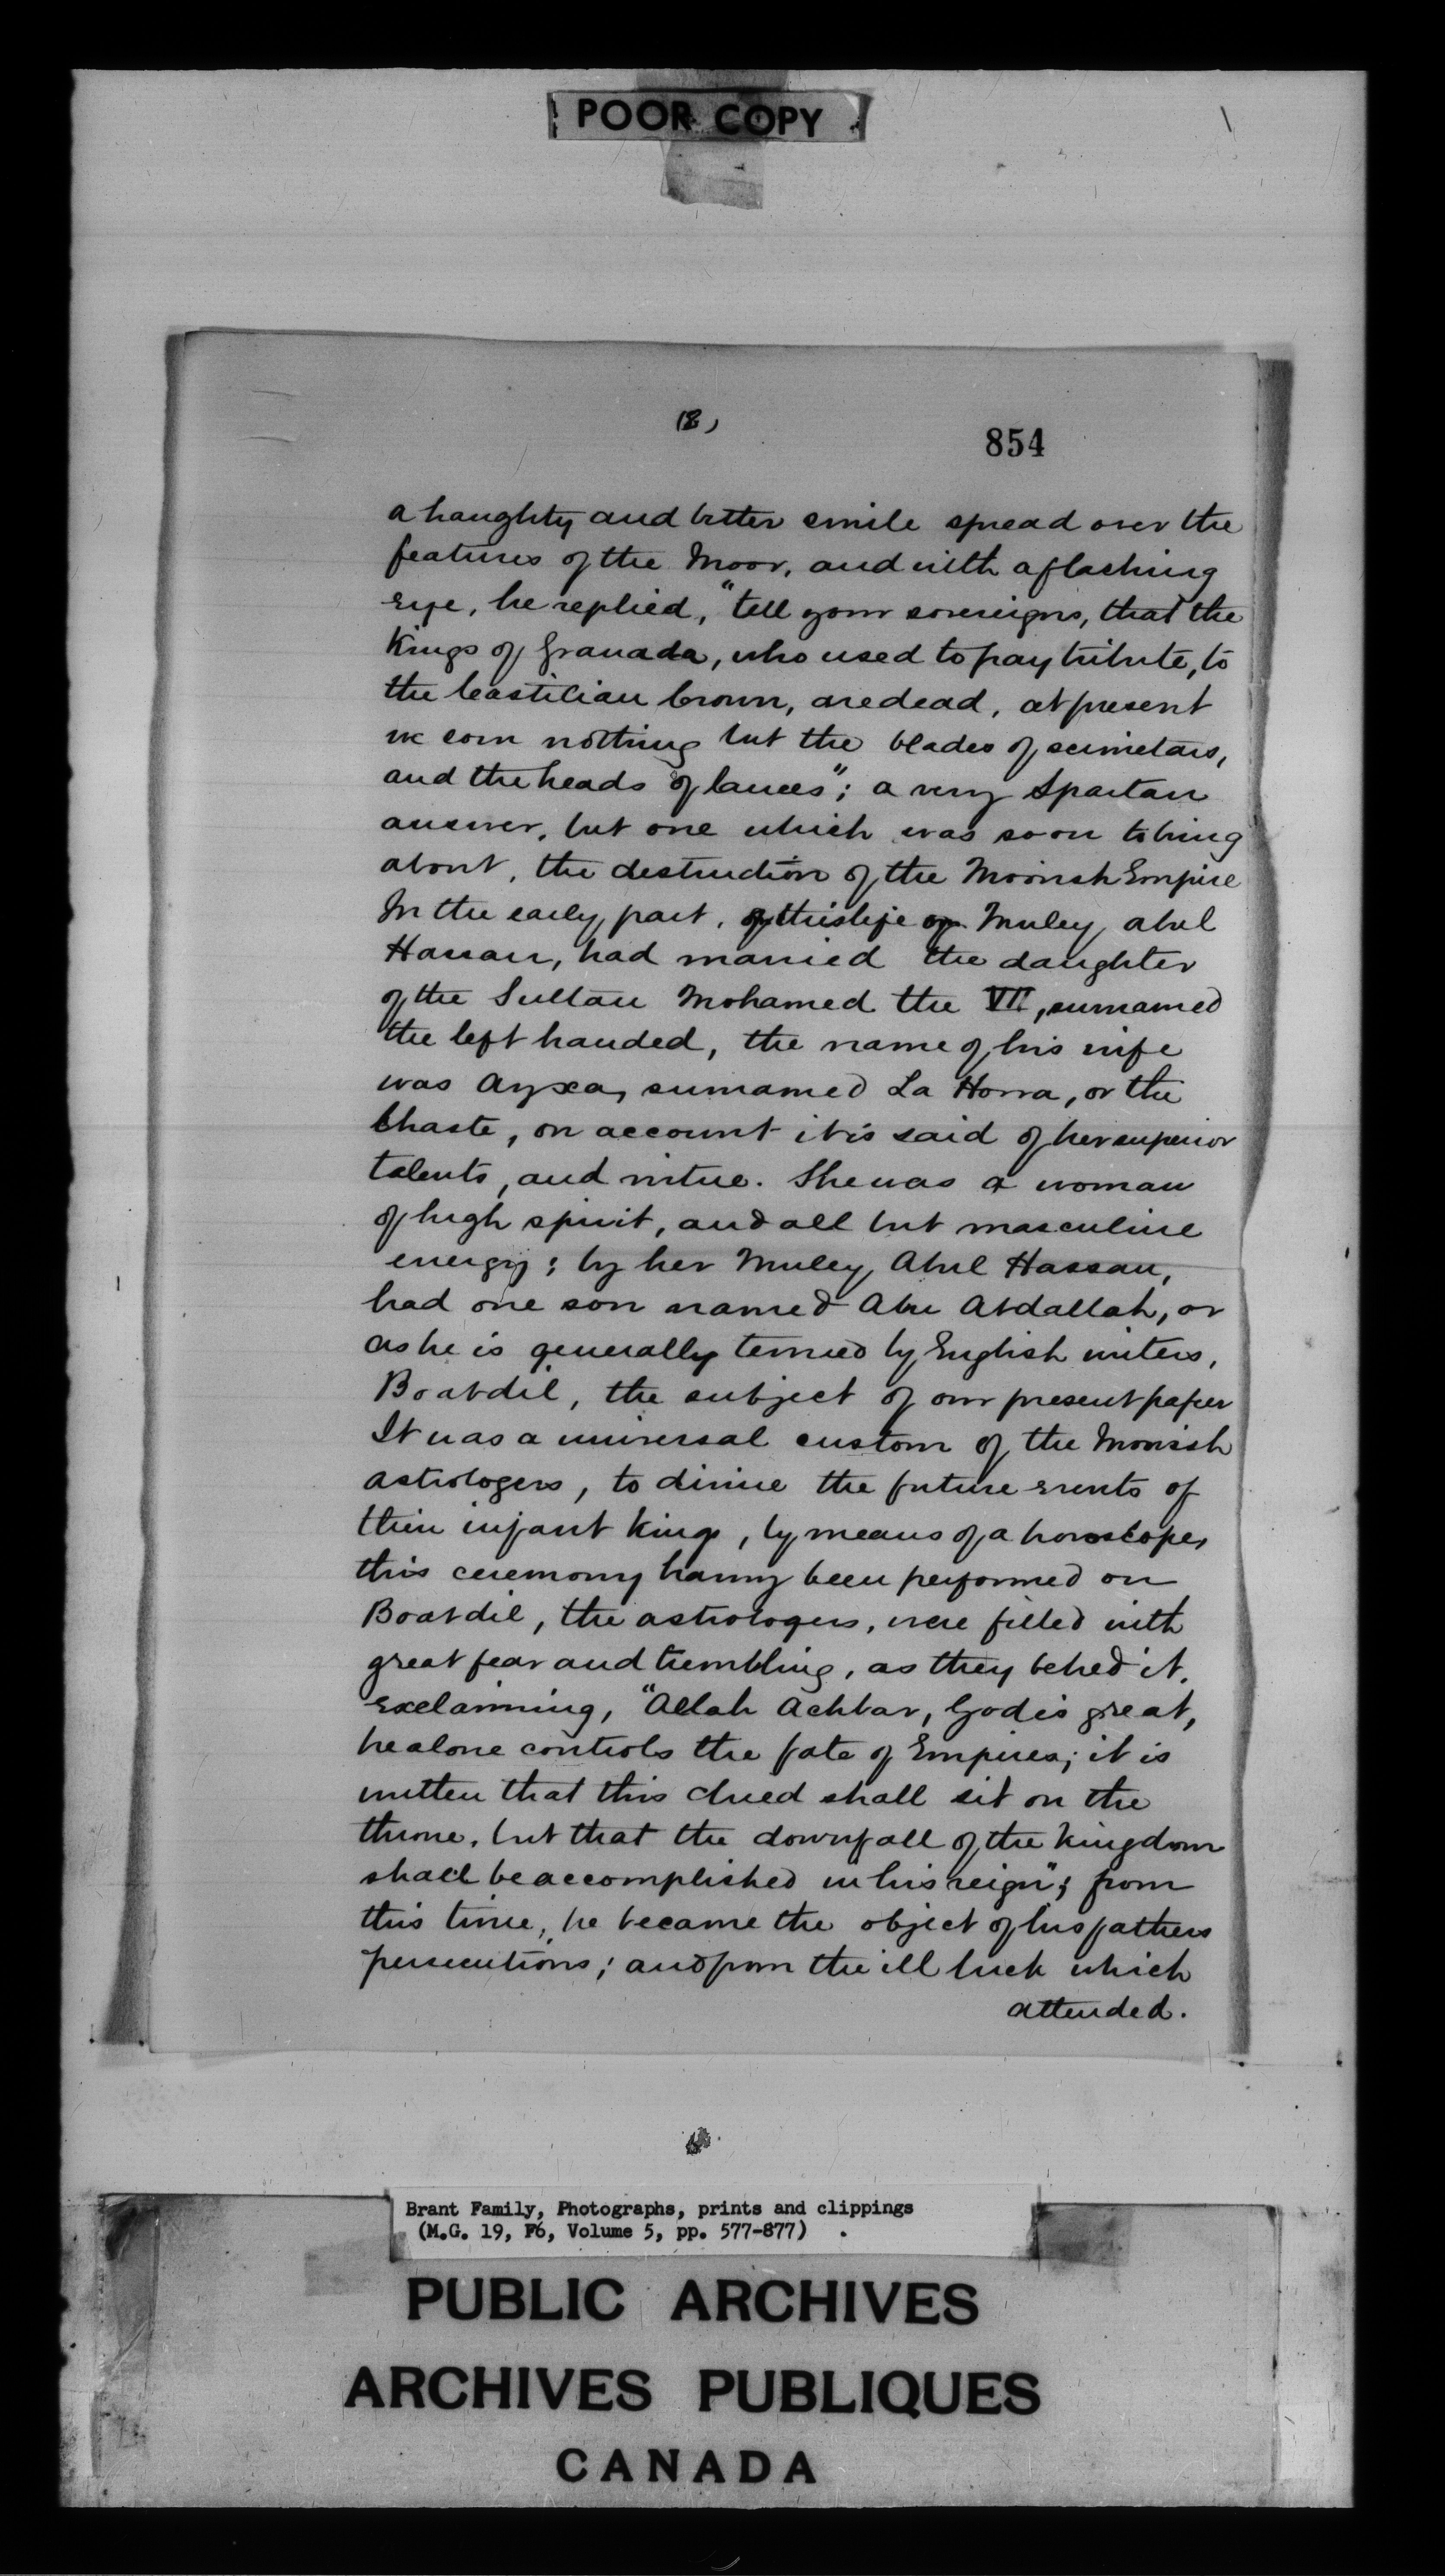 POOR COPY
(8)
854
a haughty and bitter smile spread over the
features of the Moor, and with a flashing
eye, he replied, "tell your sovereigns, that the
Kings of Granada, who used to pay tribute, to
the Castilian Crown, are dead, at present
we coin nothing but the blades of scimetars,
and the heads of lances"; a very Spartan
answer, but one which was soon to bring
about, the destruction of the Moorish Empire
In the early part, of this life of Muley Abul
Hassan, had married the daughter
of the Sultan Mohamed the VII, surnamed
the left handed, the name of his wife
was Ayxa, surnamed La Horra, or the
Chaste, on account it is said of her superior
talents, and virtue. She was a woman
of high spirit, and all but masculine
energy; by her Muley Abul Hassan,
had one son named Abu Abdallah, or
as he is generally termed by English writers,
Boabdil, the subject of our present paper
It was a universal custom of the Moorish
astrologers, to divine the future events of
their infant Kings, by means of a horoscope,
this ceremony having been performed on
Boabdil, the astrologers, were filled with
great fear and trembling, as they beheld it,
exclaiming, "Allah Achbar, God is great,
he alone controls the fate of Empires; it is
written that this child shall sit on the
throne, but that the downfall of the Kingdom
shall be accomplished in his reign"; from
this time, he became the object of his fathers
persecutions; and from the ill luck which
attended.
Brant Family, Photographs, prints and clippings
(M.G. 19, F6, Volume 5, pp. 577-877)
PUBLIC ARCHIVES
ARCHIVES PUBLIQUES
CANADA